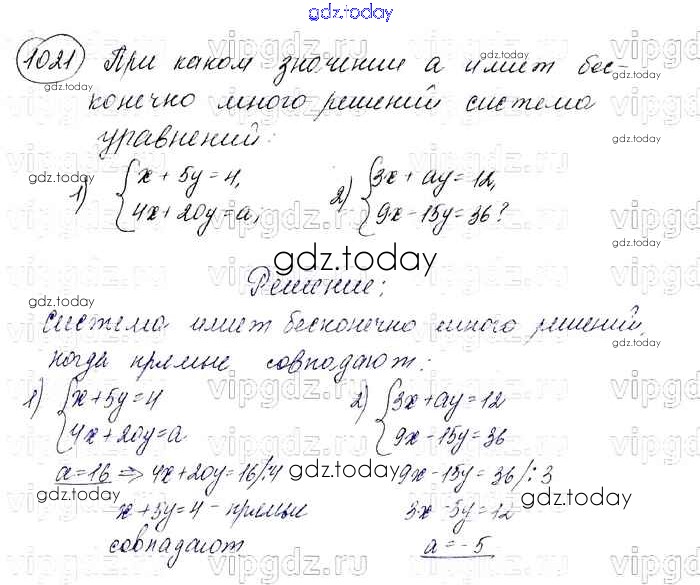 gdz.today
1021 При каком значении a имеет бес-
конечно много решений система
уравнений:
1) { x + 5y = 4,
4x + 20y = a;
2) { 3x + ay = 12,
9x - 15y = 36?
gdz.today
Решение:
Система имеет бесконечно много решений,
когда прямые совпадают:
1) { x + 5y = 4
4x + 20y = a
2) { 3x + ay = 12
9x - 15y = 36
a = 16 ⇒ 4x + 20y = 16 /:4
9x - 15y = 36 /: 3
x + 5y = 4 - прямые
3x - 5y = 12
совпадают
a = -5
gdz.today
vipgdz.ru